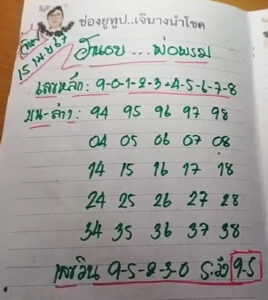 ช่องยูทูป..เจ๊นางนำโชค
15 เม.ย 67
... พ่อพรม
เลขหลัก: 9-0-1-2-3-4-5-6-7-8
บน-ล่าง 94 95 96 97 98
04 05 06 07 08
14 15 16 17 18
24 25 26 27 28
34 35 36 37 38
เลขวิน 9-5-8-3-0 ระวัง 9-5